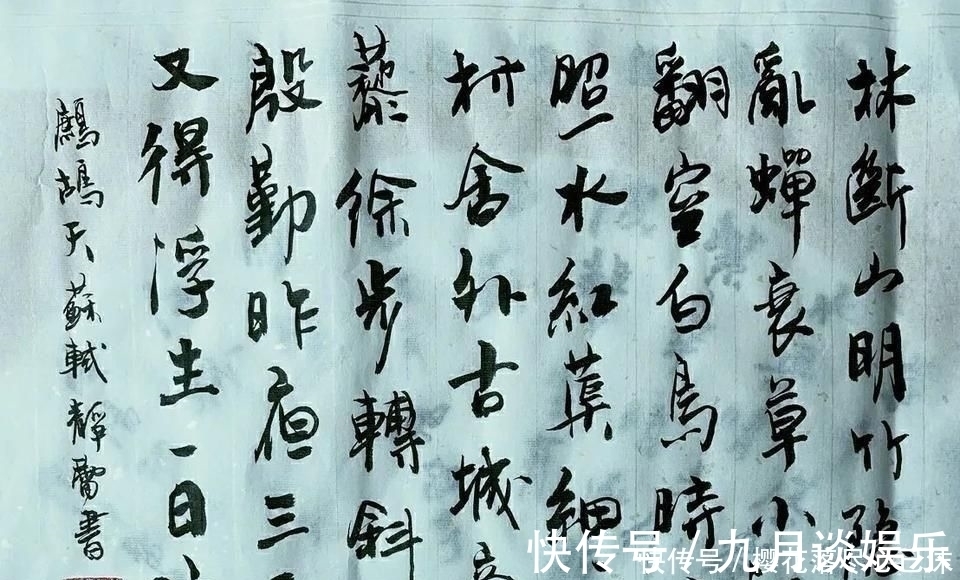 林斷山明竹隱
亂蟬衰草小
翻空白鳥時
照水紅蕖細
村舍外古城
藜徐步轉斜
殷勤昨夜三
又得浮生一日
鷓鴣天蘇軾靜書
快传号/九月谈娱乐
快传号/樱花落尽